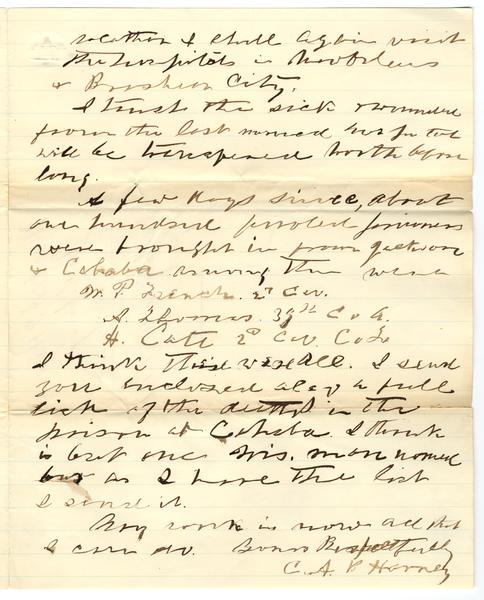 I shall again visit
the hospitals in
& Brashear City.
I trust the sick & wounded
from the last named hospital
will be transfered North before
long.
A few days since, about
one hundred paroled prisoners
were brought in from Jackson
& Cahaba among them were
W. P. French. 2d Cav.
A. Thomas. 39th Co A.
H. Cate 2d Cav. Co
I think this was all. I send
you enclosed also a full
list of the deaths in the
prison at Cahaba. I think
is but one Wis. man named
but as I have the list
I send it.
My work is now all that
I can do. Yours Respectfully
C. A. B Harvey